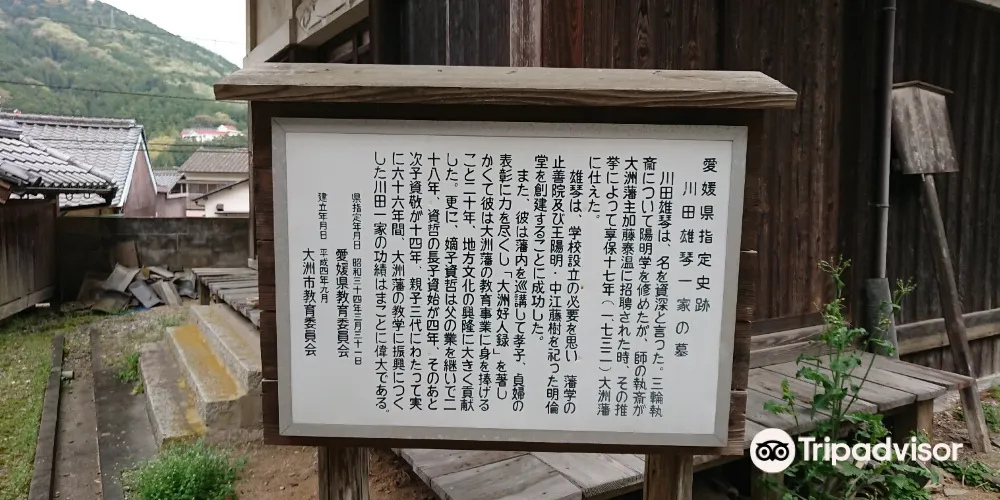 愛媛県指定史跡
川田雄琴一家の墓
川田雄琴は、名を資深と言った。三輪執
斎について陽明学を修めたが、師の執斎が
大洲藩主加藤泰温に招聘された時、その推
挙によって享保十七年(一七三二)大洲藩
に仕えた。
雄琴は、学校設立の必要を思い 藩学の
止善院及び王陽明・中江藤樹を祀った明倫
堂を創建することに成功した。
また、彼は藩内を巡講して孝子、貞婦の
表彰に力を尽くし「大洲好人録」を著し
かくて彼は大洲藩の教育事業に身を捧げる
こと二十年、地方文化の興隆に大きく貢献
した。更に、嫡子資哲は父の業を継いで二
十八年、資哲の長子資始が四年、そのあと
次子資敬が十四年、親子三代にわたって実
に六十六年間、大洲藩の教学に振興につく
した川田一家の功績はまことに偉大である。
県指定年月日 昭和三十四年三月三十一日
愛媛県教育委員会
建立年月日 平成四年九月
大洲市教育委員会
Tripadvisor